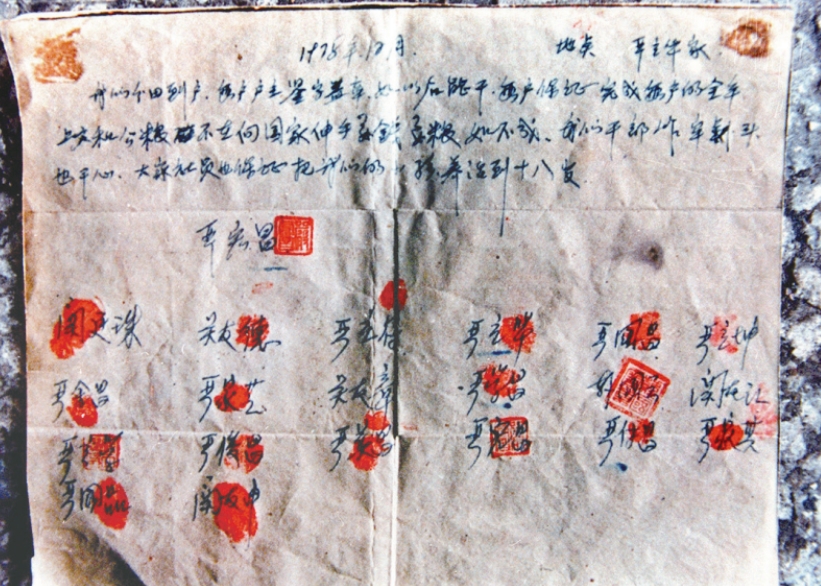 1978年12月. 地点 严立华家
我们分田到户.每户户主签字盖章.如以后能干.每户保证完成每户的全年
上交和公粮不在向国家伸手要钱要粮如不成、我们干部作牢刹头
也干心、大家社员也保证把我们的小孩养活到十八岁
严宏昌
关廷珠 关友德 严立符 严立华 严国昌 严立坤
严金昌 严家芝 关友章 严学昌 韩国云 关友江
严俊昌 严美昌 严付昌
严国品 关友申